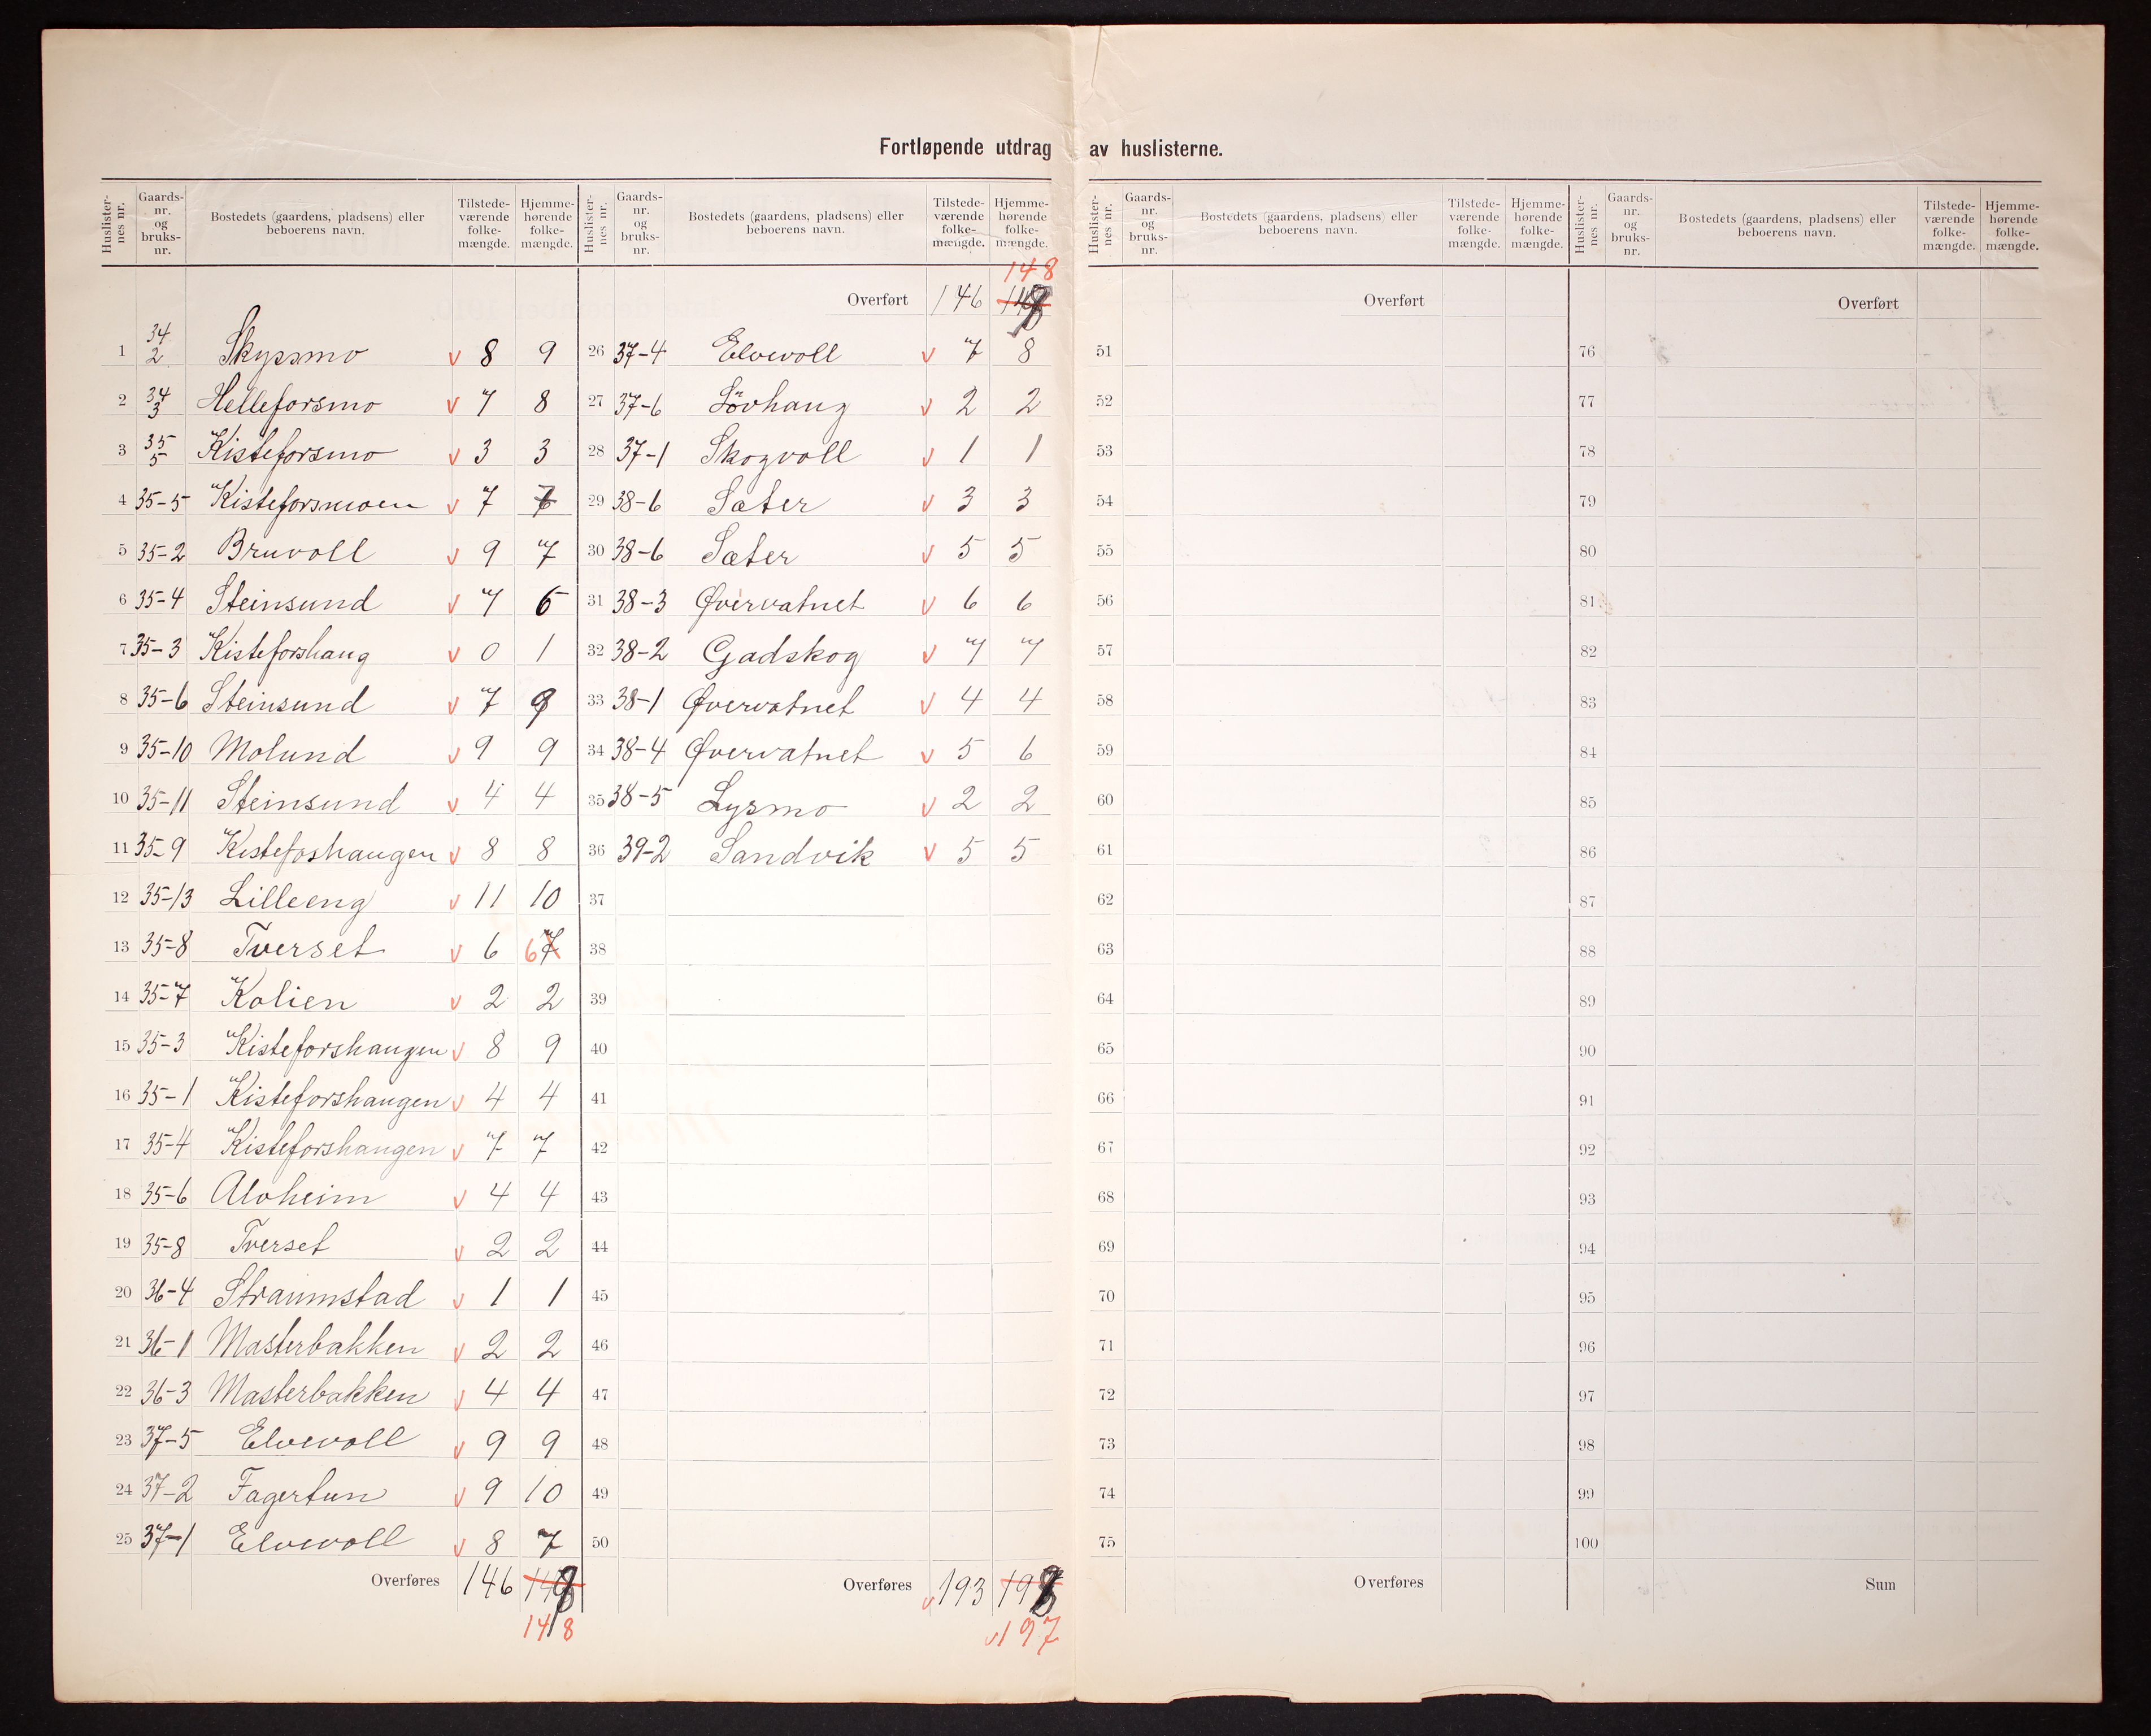 Fortløpende utdrag av huslisterne.
Huslister-nes nr. Gaards-nr. og bruks-nr. Bostedets (gaardens, pladsens) eller beboerens navn. Tilstede-værende folke-mængde. Hjemme-hørende folke-mængde.
1 34 2 Skyssmo v 8 9
2 34 3 Helleforsmo v 7 8
3 35 5 Kisteforsmo v 3 3
4 35-5 Kisteforsmoen v 7 7
5 35-2 Bruvoll v 9 7
6 35-4 Steinsund v 7 6
7 35-3 Kisteforshaug v 0 1
8 35-6 Steinsund v 7 9
9 35-10 Molund v 9 9
10 35-11 Steinsund v 4 4
11 35-9 Kisteforshaugen v 8 8
12 35-13 Lilleeng v 11 10
13 35-8 Tverset v 6 6 7
14 35-7 Kolien v 2 2
15 35-3 Kisteforshaugen v 8 9
16 35-1 Kisteforshaugen v 4 4
17 35-4 Kisteforshaugen v 7 7
18 35-6 Alvheim v 4 4
19 35-8 Tverset v 2 2
20 36-4 Straumstad v 1 1
21 36-1 Masterbakken v 2 2
22 36-3 Masterbakken v 4 4
23 37-5 Elvevoll v 9 9
24 37-2 Fagertun v 9 10
25 37-1 Elvevoll v 8 7
Overføres 146
148
Huslister-nes nr. Gaards-nr. og bruks-nr. Bostedets (gaardens, pladsens) eller beboerens navn. Tilstede-værende folke-mængde. Hjemme-hørende folke-mængde.
148
Overført 146
26 37-4 Elvevoll v 7 8
27 37-6 Løvhaug v 2 2
28 37-1 Skogvoll v 1 1
29 38-6 Sæter v 3 3
30 38-6 Sæter v 5 5
31 38-3 Øvervatnet v 6 6
32 38-2 Gadskog v 7 7
33 38-1 Øvervatnet v 4 4
34 38-4 Øvervatnet v 5 6
35 38-5 Lysmo v 2 2
36 39-2 Sandvik v 5 5
37
38
39
40
41
42
43
44
45
46
47
48
49
50
Overføres v 193
v 197
Huslister-nes nr. Gaards-nr. og bruks-nr. Bostedets (gaardens, pladsens) eller beboerens navn. Tilstede-værende folke-mængde. Hjemme-hørende folke-mængde.
Overført
51
52
53
54
55
56
57
58
59
60
61
62
63
64
65
66
67
68
69
70
71
72
73
74
75
Overføres
Huslister-nes nr. Gaards-nr. og bruks-nr. Bostedets (gaardens, pladsens) eller beboerens navn. Tilstede-værende folke-mængde. Hjemme-hørende folke-mængde.
Overført
76
77
78
79
80
81
82
83
84
85
86
87
88
89
90
91
92
93
94
95
96
97
98
99
100
Sum